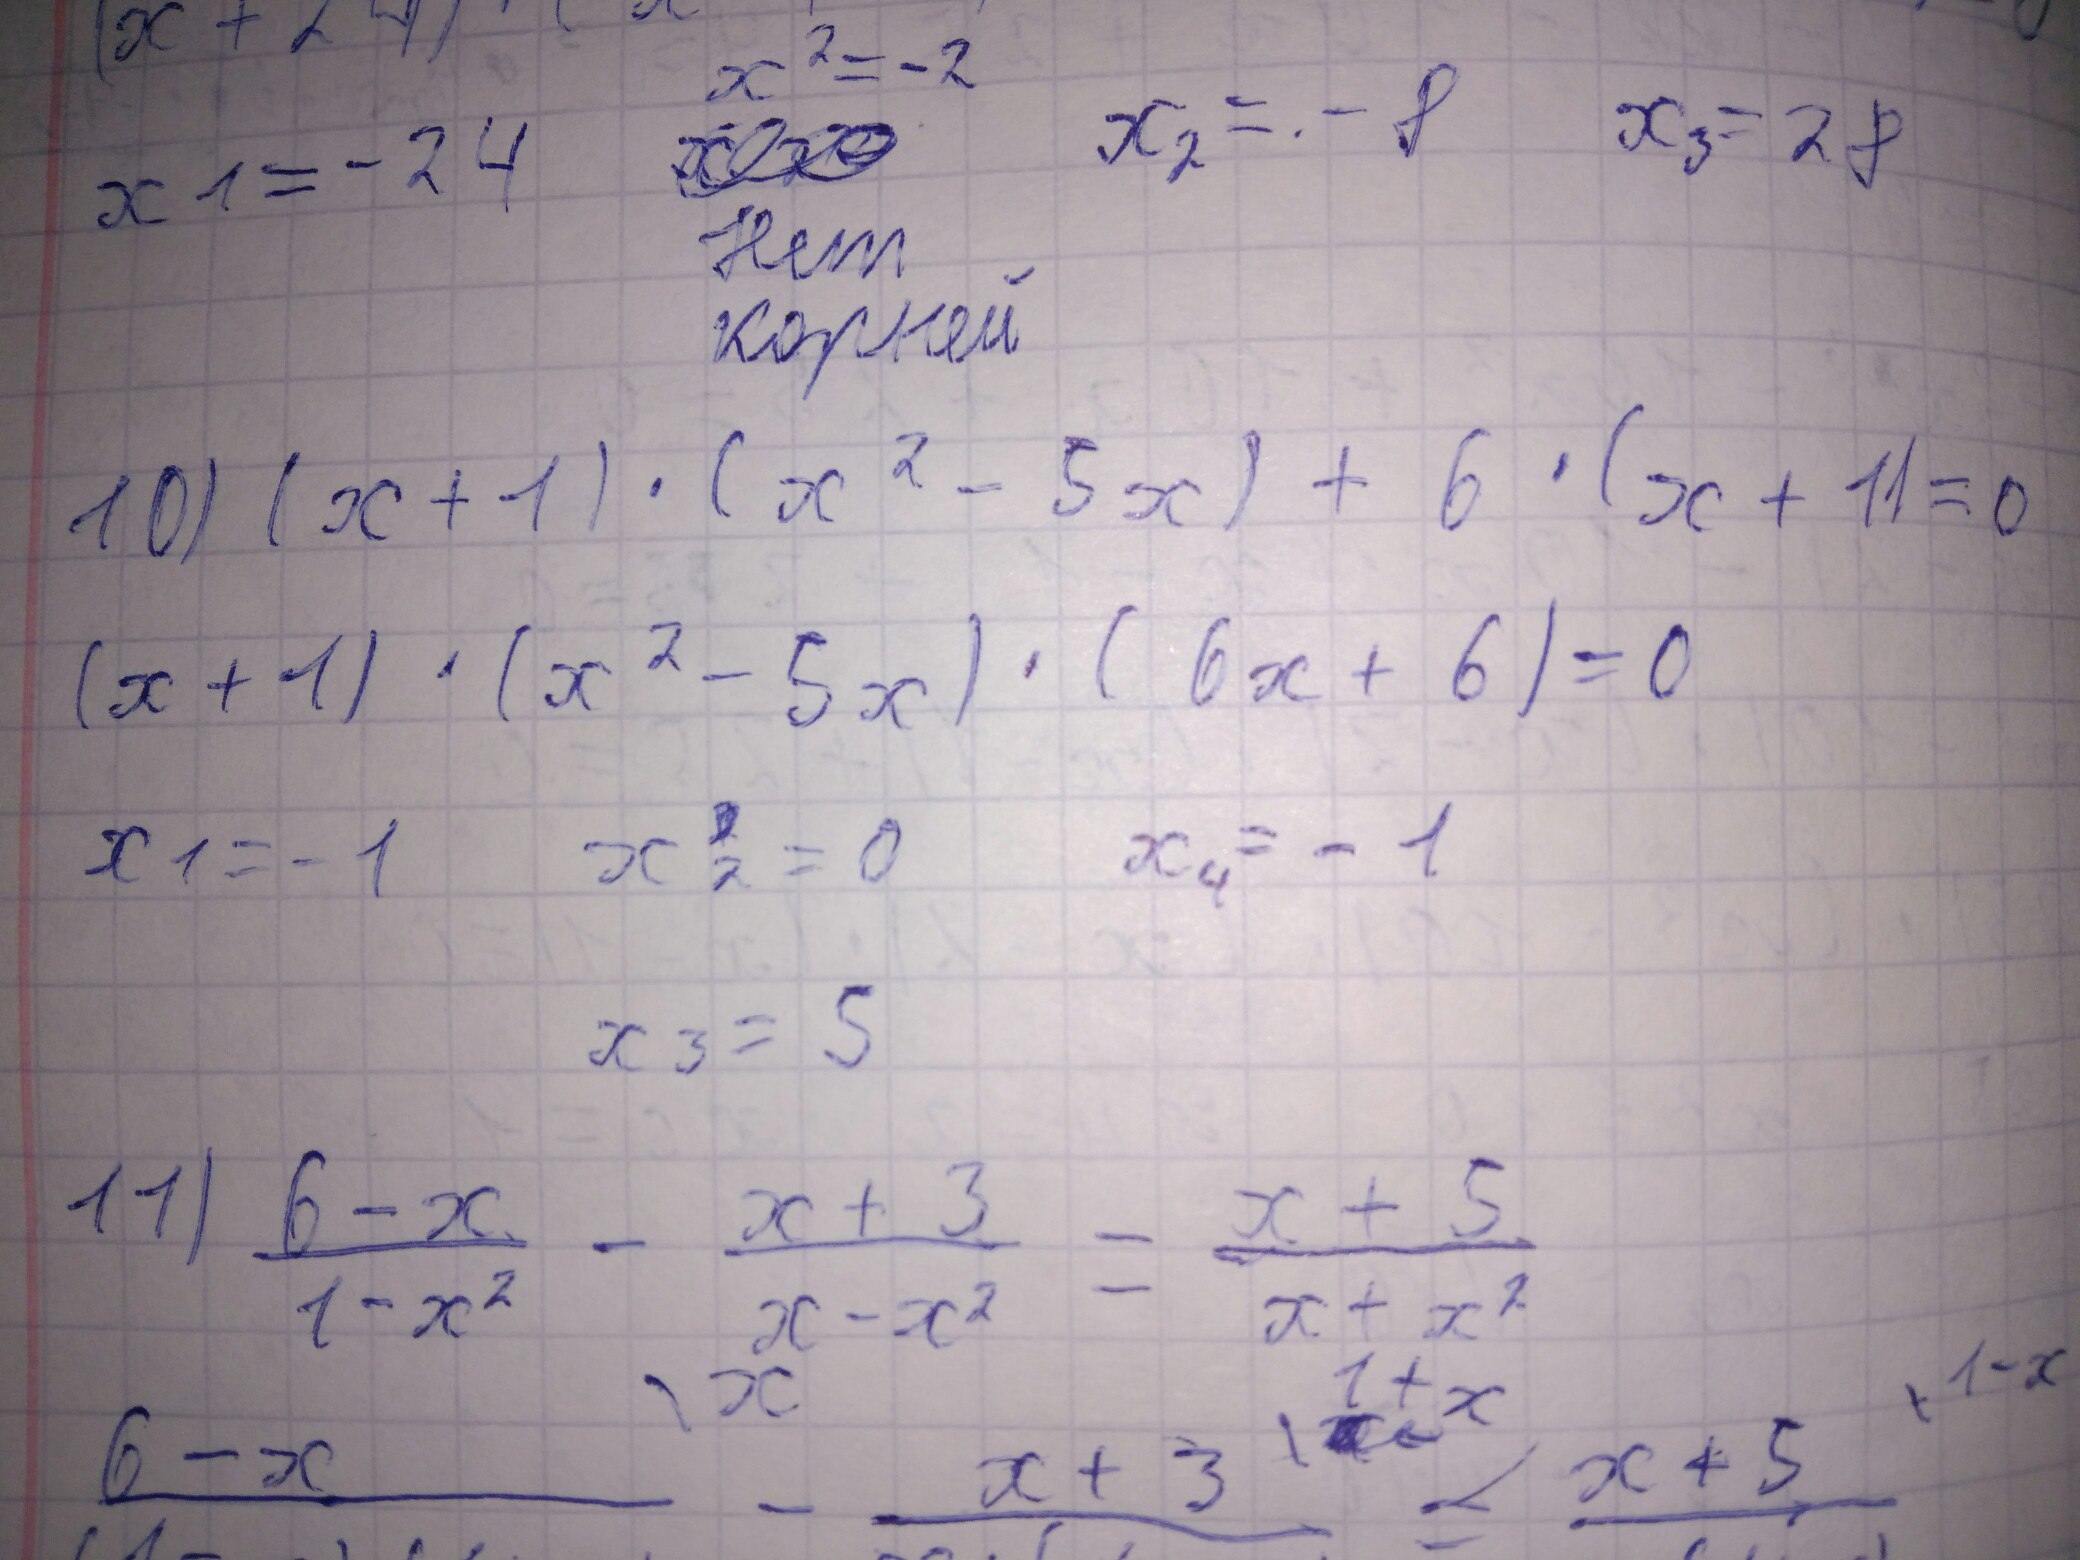 (x + 24) · (x
x² = -2
x1 = -24 x₂ = -8 x₃ = 28
Нет
корней
10) (x + 1) · (x² - 5x) + 6 · (x + 1) = 0
(x + 1) · (x² - 5x) · (6x + 6) = 0
x1 = -1 x₂ = 0 x₄ = -1
x3 = 5
11) (6 - x)/(1 - x²) - (x + 3)/(x - x²) = (x + 5)/(x + x²)
\x 1+x \1-x
6 - x - x + 3 = x + 5